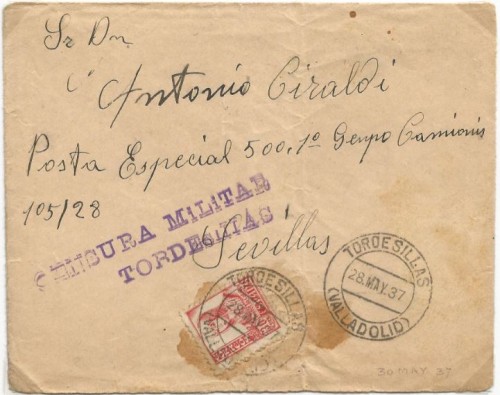 Sr Dn
Antonio Ciraldi
Posta Especial 500, 1º Genpo Camionis
105/28
Sevillas
CENSURA MiLiTAR
TORDESILLAS
TORDESILLAS
28.MAY.37
(VALLADOLID)
TORDESILLAS
28.MAY
VALL
30 MAY 37